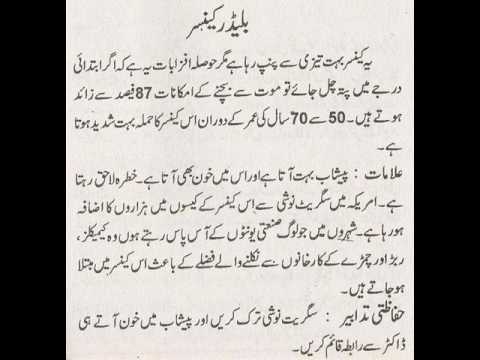 بلیڈر کینسر
یہ کینسر بہت تیزی سے پنپ رہا ہے مگر حوصلہ افزا بات یہ ہے کہ اگر ابتدائی
درجے میں پتہ چل جائے تو موت سے بچنے کے امکانات 87 فیصد سے زائد
ہوتے ہیں۔ 50 سے 70 سال کی عمر کے دوران اس کینسر کا حملہ بہت شدید ہوتا
ہے۔
علامات : پیشاب بہت آتا ہے اور اس میں خون بھی آتا ہے۔ خطرہ لاحق رہتا
ہے۔ امریکہ میں سگریٹ نوشی سے اس کینسر کے کیسوں میں ہزاروں کا اضافہ
ہو رہا ہے۔ شہروں میں جو لوگ صنعتی یونٹوں کے آس پاس رہتے ہوں وہ کیمیکلز،
ربڑ اور چمڑے کے کارخانوں سے نکلنے والے فضلے کے باعث اس کینسر میں مبتلا
ہو جاتے ہیں۔
حفاظتی تدابیر : سگریٹ نوشی ترک کریں اور پیشاب میں خون آتے ہی
ڈاکٹر سے رابطہ قائم کریں۔